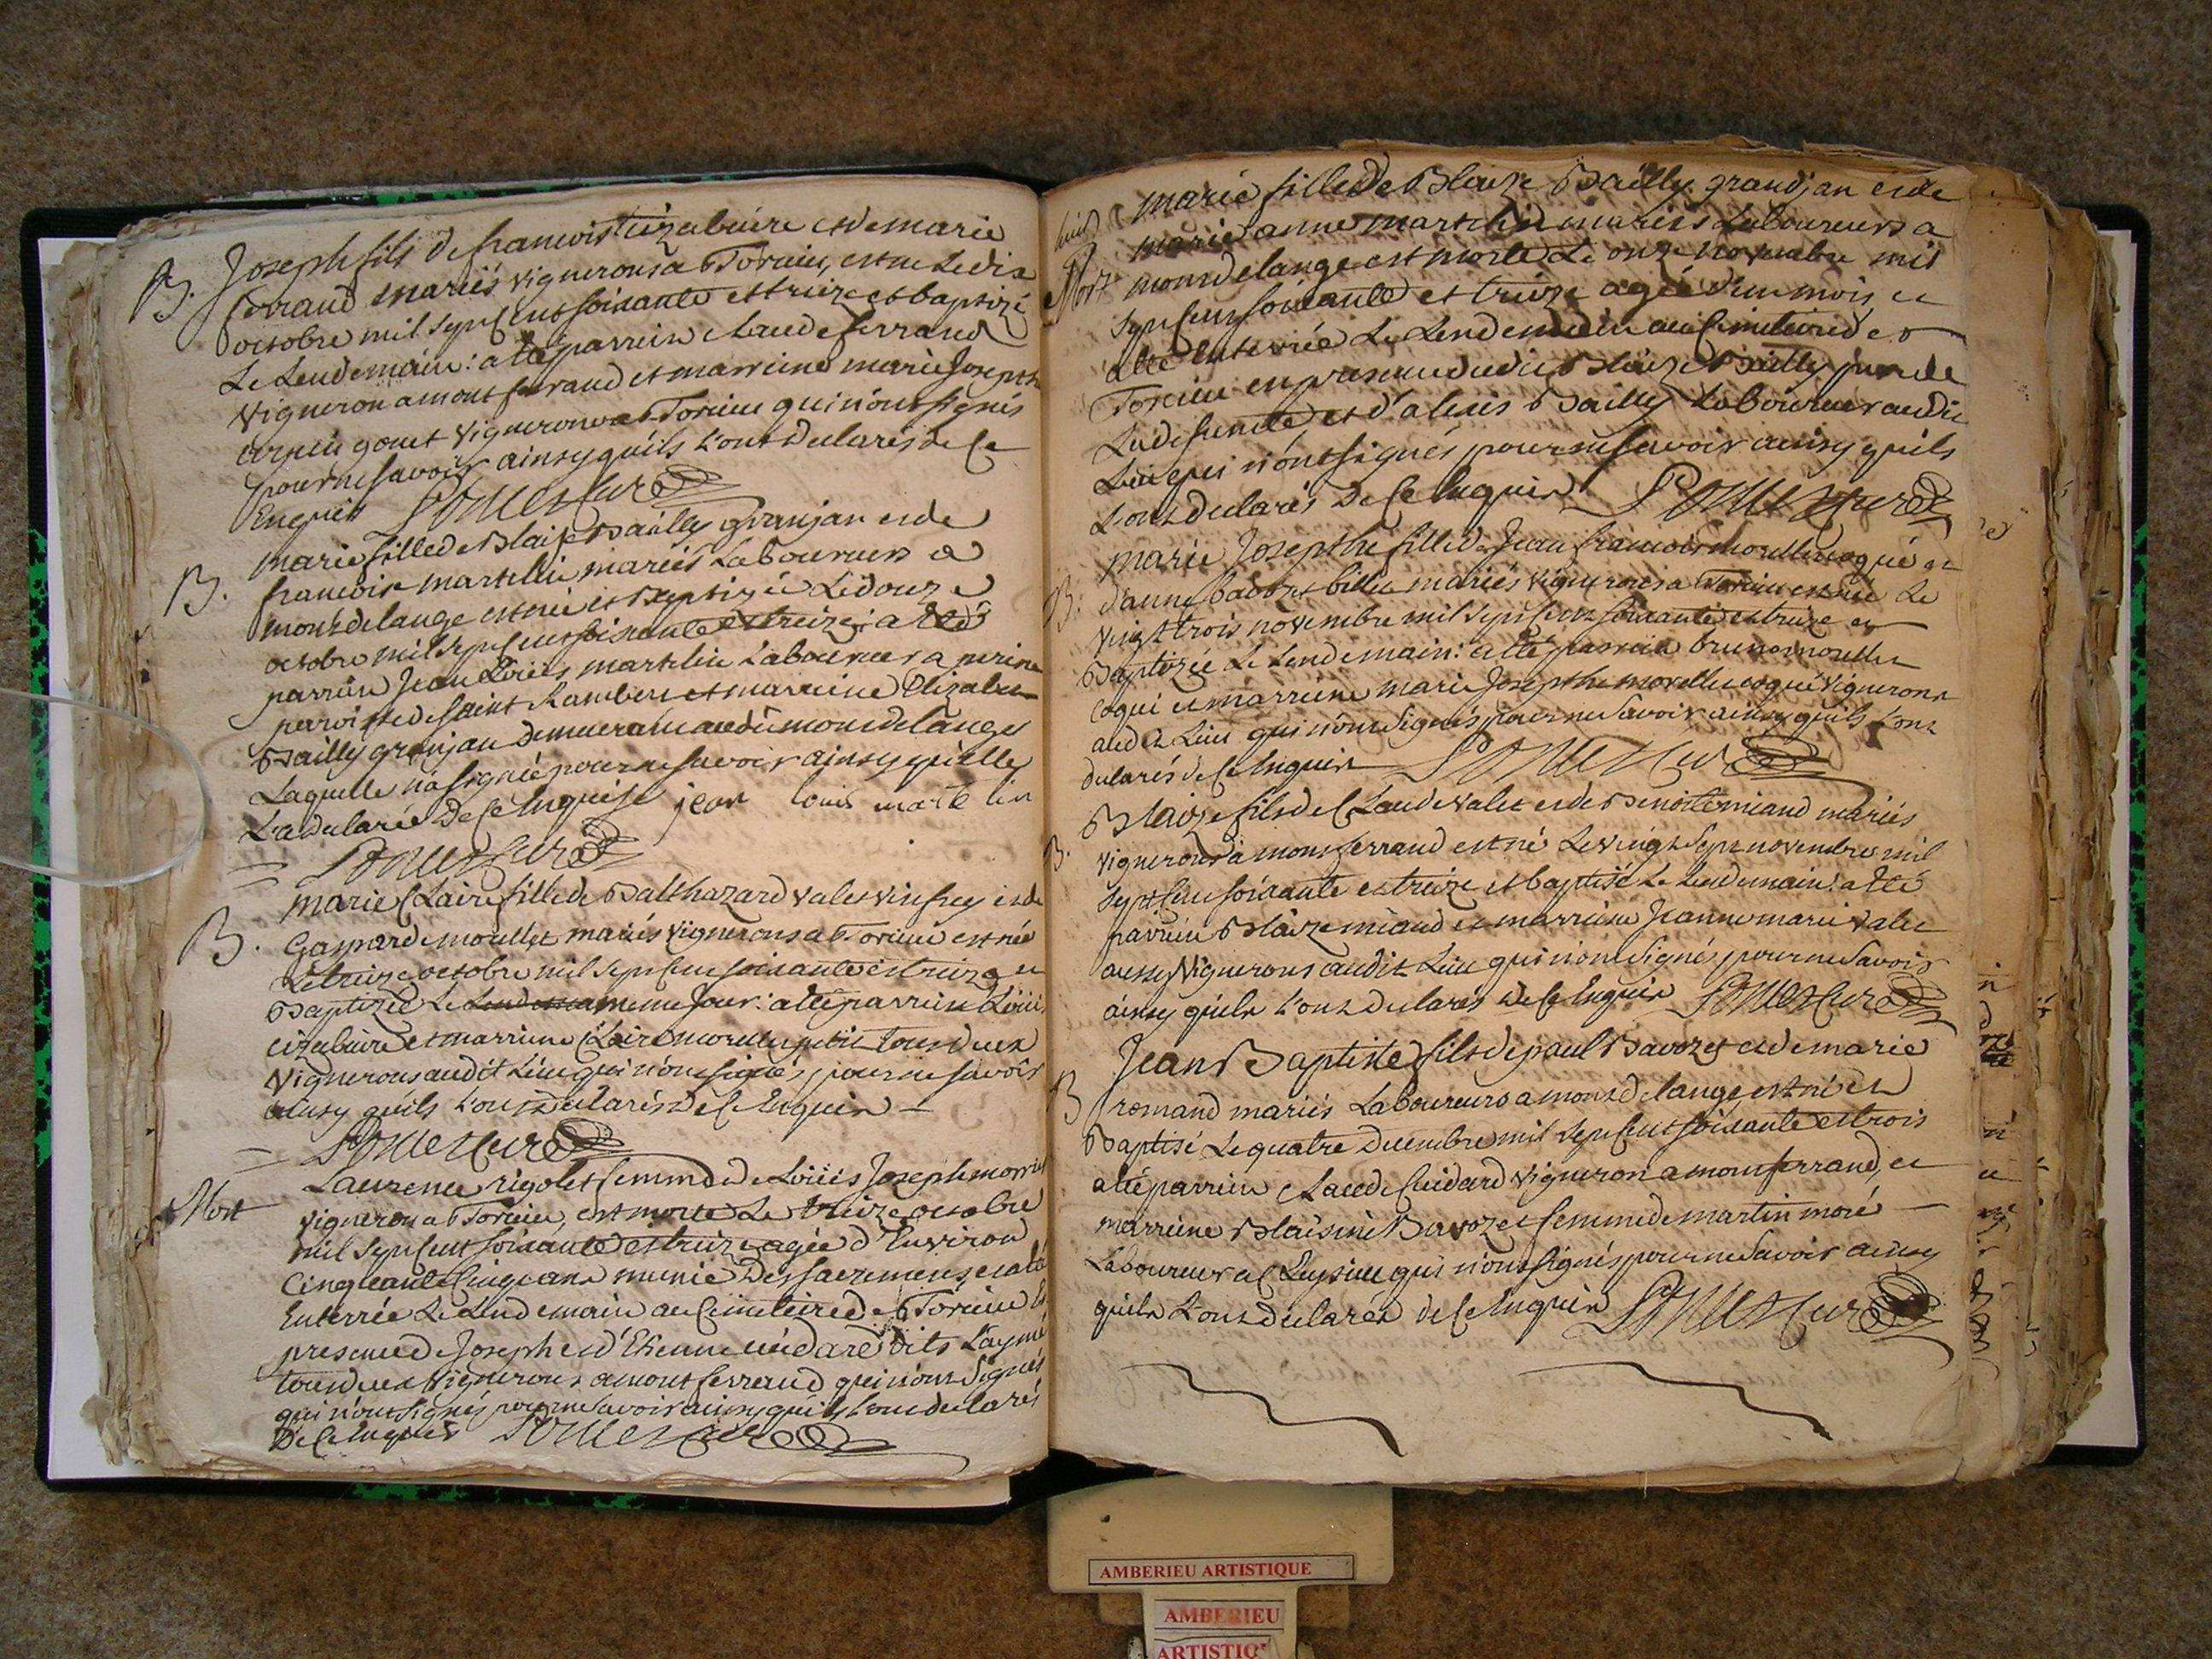 B. Joseph fils de francois cizabuire et de marie
ferrand mariés vignerons a Torcieu, est né le dix
octobre mil sept cent soixante et treize et baptizé
Le Lendemain : a été parrein claude ferrand
vigneron a montferrand et marreine marie Josephte
gouet vignerons a Torcieu qui n'ont signés
pour ne savoir ainsy qu'ils L'ont declarés de ce
Enquis Ponce Curé
B. marie fille de Blaise Bailly granjan et de
francoise martelin mariés Laboureurs a
montdelange est née et Baptizée Le douze
octobre mil sept cent soixante et treize : a été
parrein Jean Loüis martelin Laboureur a
parroisse de saint Rambert et marreine Elizabet
Bailly granjan demeurante audit montdelange
Laquelle n'a signé pour ne savoir ainsy qu'elle
L'a declarée de ce Enquise jean louis martelin
Ponce Curé
B. marie Claire fille de Balthazard valet vinfrey et de
Gasparde morellet mariés vignerons a Torcieu est née
Le treize octobre mil sept cent soixante et treize et
Baptizée Le meme Jour : a été parrein Loüis
cizabuire et marreine Claire morellet tous deux
vignerons audit Lieu qui n'ont signés pour ne savoir
ainsy qu'ils L'ont declarés de ce Enquis
Ponce Curé
Mort Laurence rigolet femme de Loüis Joseph
vigneron a Torcieu, est morte Le treize octobre
mil sept cent soixante et treize agée d'Environ
Cinquante Cinq ans munie des sacremens et a été
Enterrée Le Lendemain au Cimetiere de Torcieu En
presence de Joseph et d'Etienne dits L'aymé
tous deux vignerons a montferrand qui n'ont signés
qui n'ont signés pour ne savoir ainsy qu'ils L'ont declarés
De Ce Enquis Ponce Curé
marie fille de Blaize Bailly grandjan et de
marie anne martelin mariés Laboureurs a
Mort montdelange est morte Le onze novembre mil
sept cent soixante et treize agée d'un mois et
a été Enterrée Le Lendemain au Cimetiere de
Torcieu en presence dudit Blaize Bailly pere de
La defunte et d'alexis Bailly Laboureur audit
Lieu qui n'ont signés pour ne savoir ainsy qu'ils
L'ont declarés De Ce Enquis Ponce Curé
marie Josepthe fille de Jean francois morellet coqué et
B. d'anne Bavozet mariés vignerons a Torcieu est née Le
vingt trois novembre mil sept cent soixante et treize et
Baptizée Le Lendemain : a été parrein morellet
coqué et marreine marie Josepthe morellet coqué vignerons
audit Lieu qui n'ont signés pour ne savoir ainsy qu'ils L'ont
declarés de Ce Enquis Ponce Curé
Blaize fils de Claude valet et de Benoite miand mariés
B. vignerons a montferrand est né Le vingt sept novembre mil
sept cent soixante et treize et baptisé Le Lendemain : a été
parrein Blaize miand et marreine Jeanne marie valet
aussy vignerons audit Lieu qui n'ont signé pour ne savoir
ainsy qu'ils L'ont declarés de Ce Enquis Ponce Curé
Jean Baptiste fils de paul Bavozet et de marie
B romand mariés Laboureurs a montdelange est né et
Baptisé Le quatre decembre mil sept cent soixante et trois
a été parrein Claude vigneron a montferrand, et
marreine Blaisine Bavozet femme de martin moré
Laboureur a Cleyzieu qui n'ont signés pour ne savoir ainsy
qu'ils L'ont declarés de Ce Enquis Ponce Curé
AMBERIEU ARTISTIQUE
AMBERIEU
ARTISTIQ